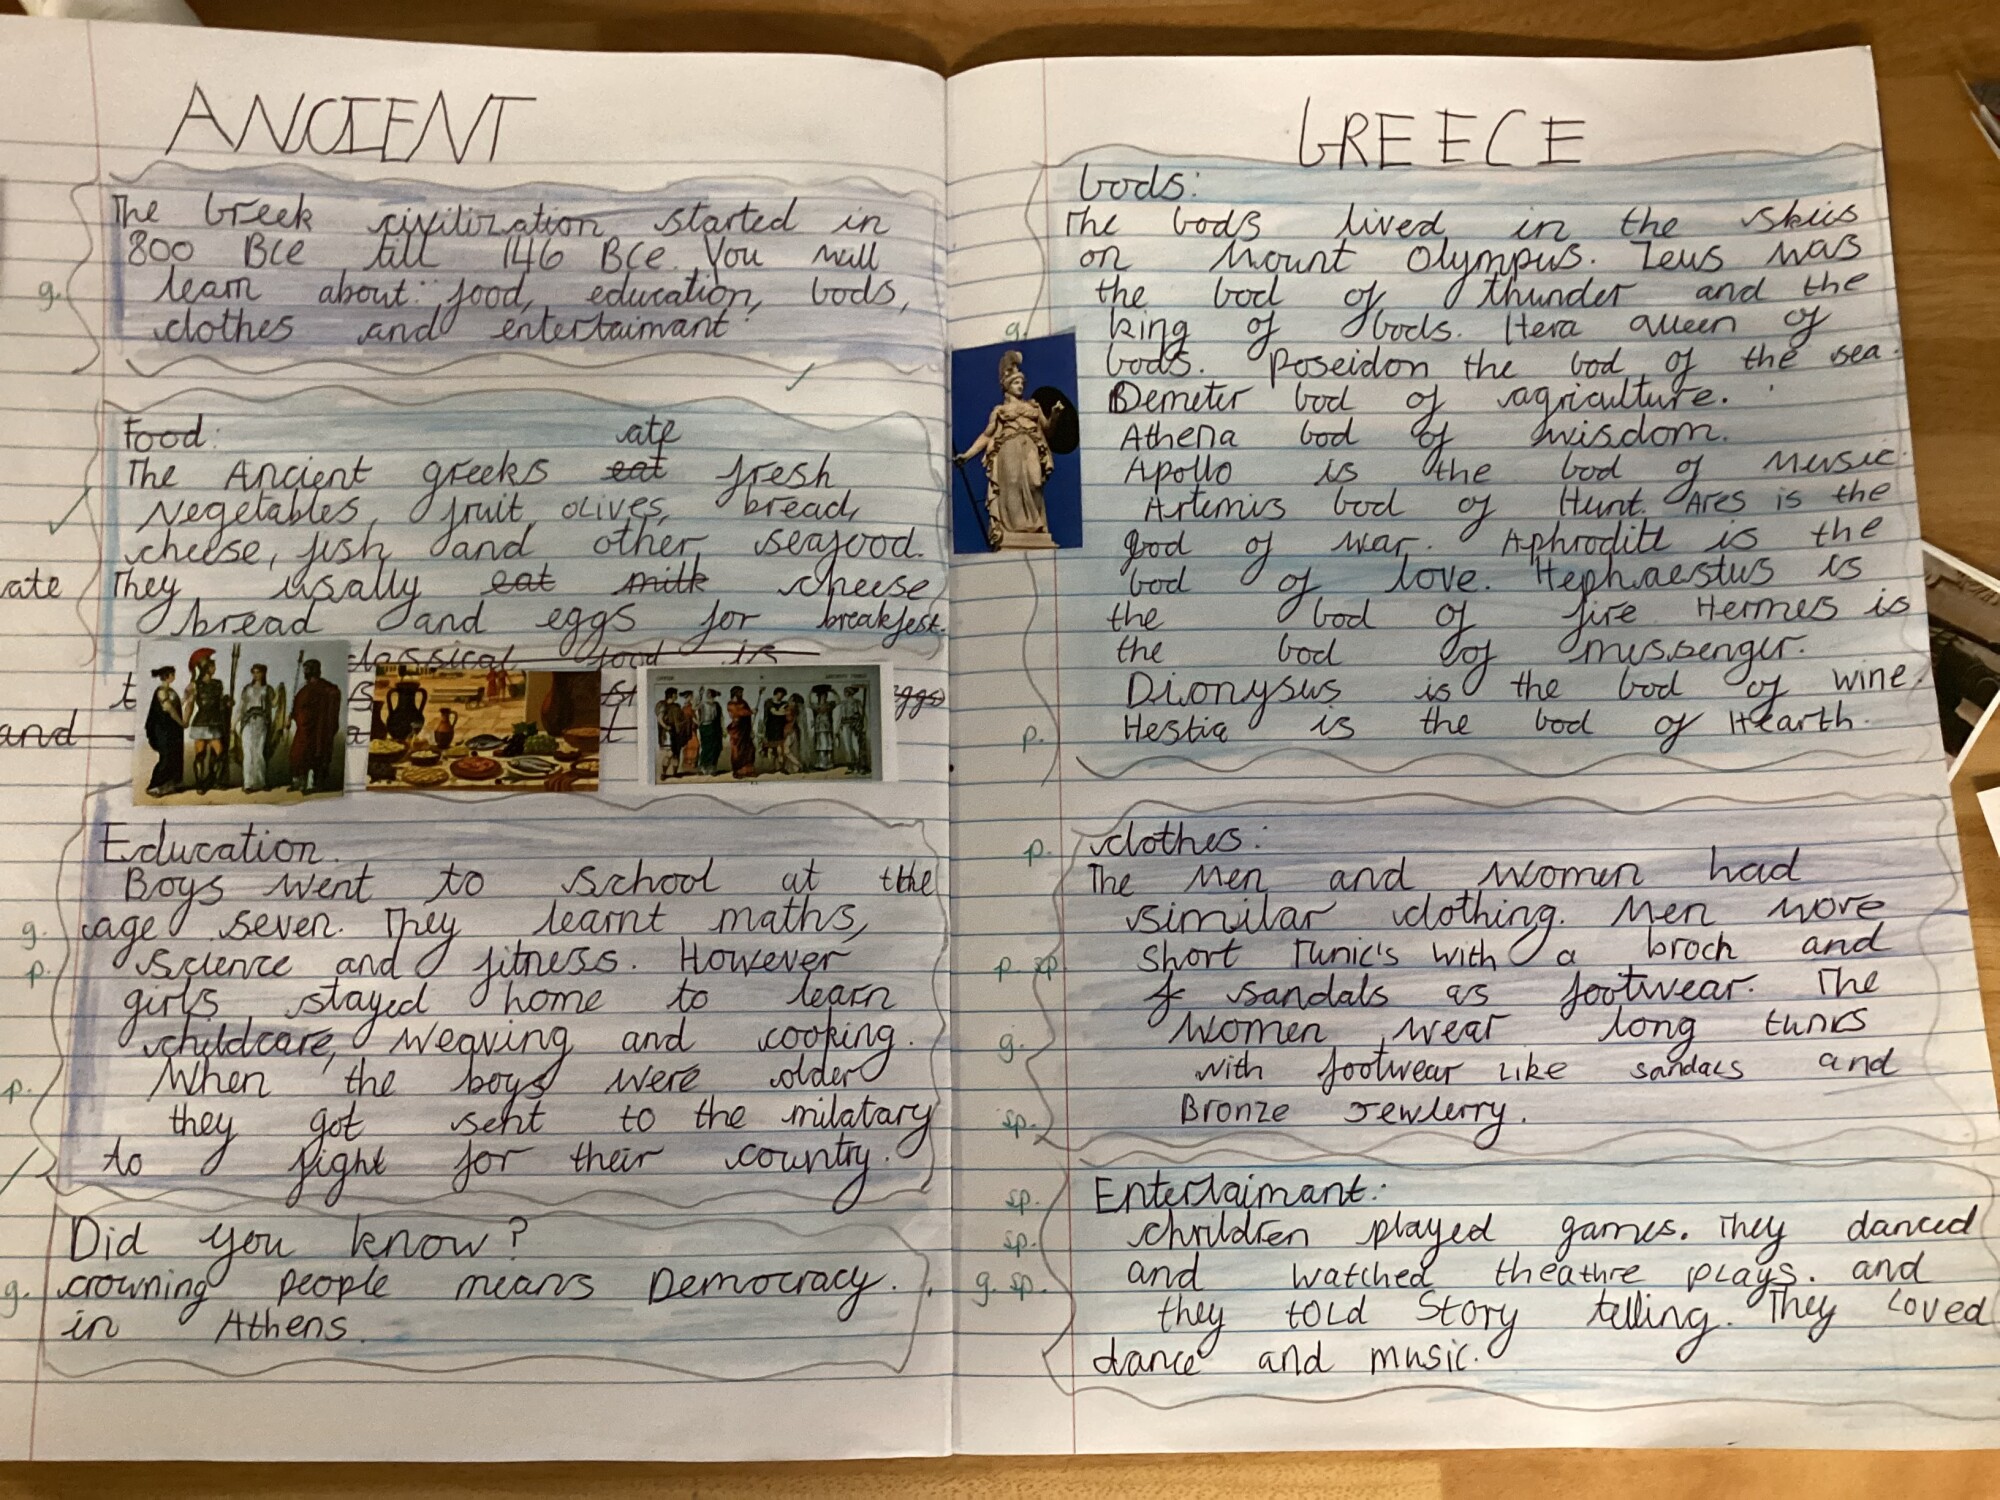 ANCIENT
The Greek civilization started in
800 Bce till 146 Bce. You will
g. learn about: food, education, Gods,
clothes and entertaimant.
Food:
ate
The Ancient greeks eat fresh
vegetables, fruit, olives, bread,
cheese, fish and other seafood.
ate They usally eat milk cheese
bread and eggs for breakfest.
classical food is
eggs
and
Education.
Boys went to school at the
g. age seven. They learnt maths,
p. science and fitness. However
girls stayed home to learn
childcare, weaving and cooking.
p. When the boys were older
they got sent to the milatary
to fight for their country.
Did you know?
g. crowning people means Democracy.
in Athens.
GREECE
Gods:
The Gods lived in the skiis
on Mount Olympus. Zeus was
the God of thunder and the
g. king of Gods. Hera Queen of
Gods. Poseidon the God of the sea.
Demeter God of agriculture.
Athena God of wisdom.
Apollo is the God of Music.
Artemis God of Hunt. Ares is the
god of war. Aphrodite is the
God of love. Hephaestus is
the God of fire Hermes is
the God of messenger.
Dionysus is the God of wine,
p. Hestia is the God of Hearth.
p. clothes:
The Men and Women had
similar clothing. Men wore
p. sp. short Tunic's with a broch and
f sandals as footwear. The
g. Women wear long tunics
with footwear like sandals and
sp. Bronze Jewlerry.
sp. Entertaimant:
sp. chrildren played games. They danced
g. sp. and watched theathre plays. and
they told Story telling. They loved
dance and music.